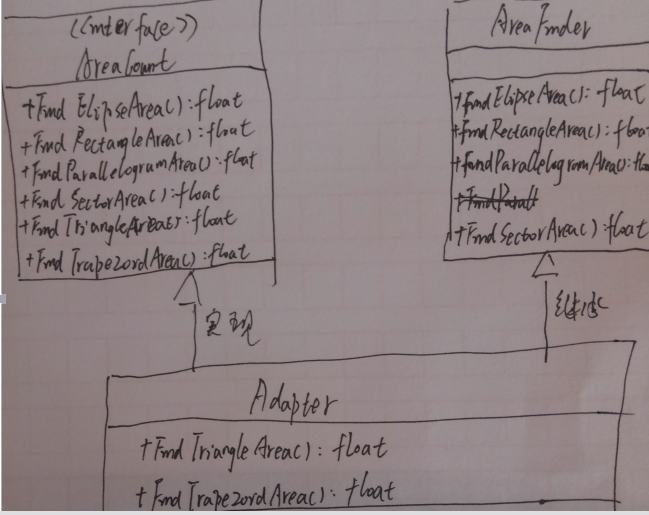 <<interface>>
AreaCount
+Find ElipseArea():float
+Find RectangleArea():float
+FindParallelogramArea():float
+Find SectorArea():float
+Find TriangleArea():float
+Find TrapezoidArea():float
AreaFinder
+FindElipseArea():float
+FindRectangleArea():floa
+FindParallelogramArea():flo
+FindParall
+FindSectorArea():float
实现
继承
Adapter
+Find TriangleArea():float
+Find TrapezoidArea():float